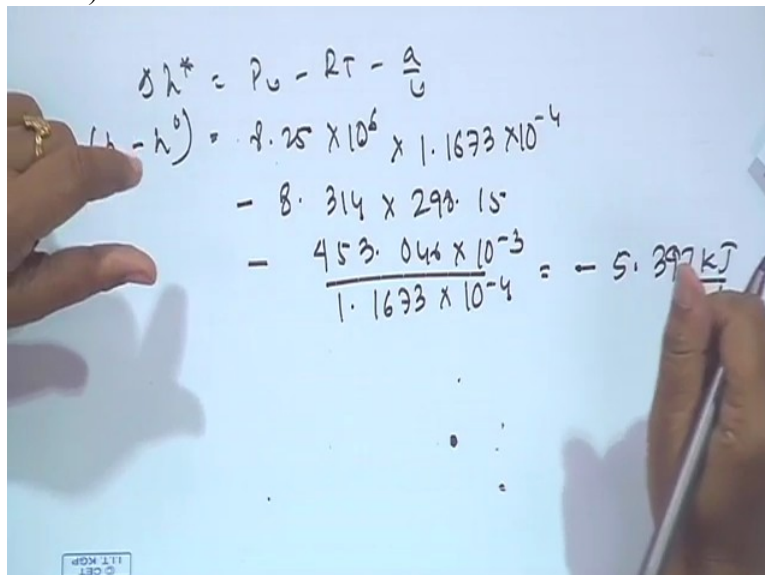 Δh* = Pv - RT - a/v
(h - h⁰) = 8.25 × 10⁶ × 1.1673 × 10⁻⁴
- 8.314 × 298.15
- 453.046 × 10⁻³ / 1.1673 × 10⁻⁴ = - 5.397 kJ
© CET
I.I.T. KGP